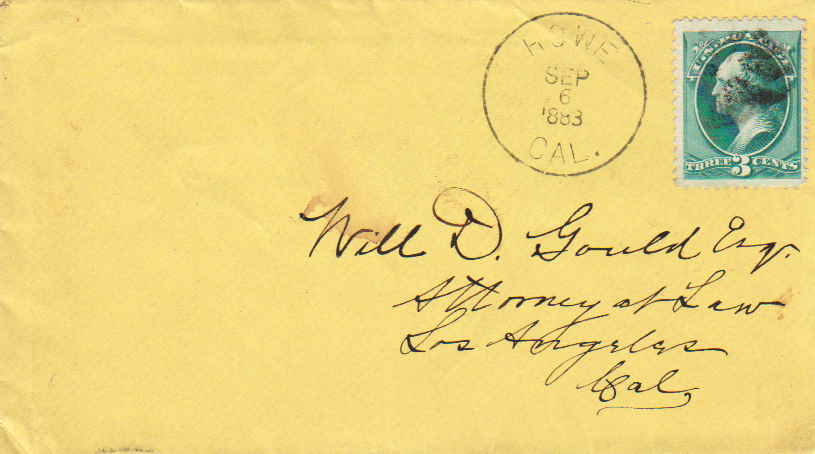 HOWE
SEP
6
1883
CAL.
U.S. POSTAGE
THREE 3 CENTS
Will D. Gould Esq.
Attorney at Law
Los Angeles
Cal,